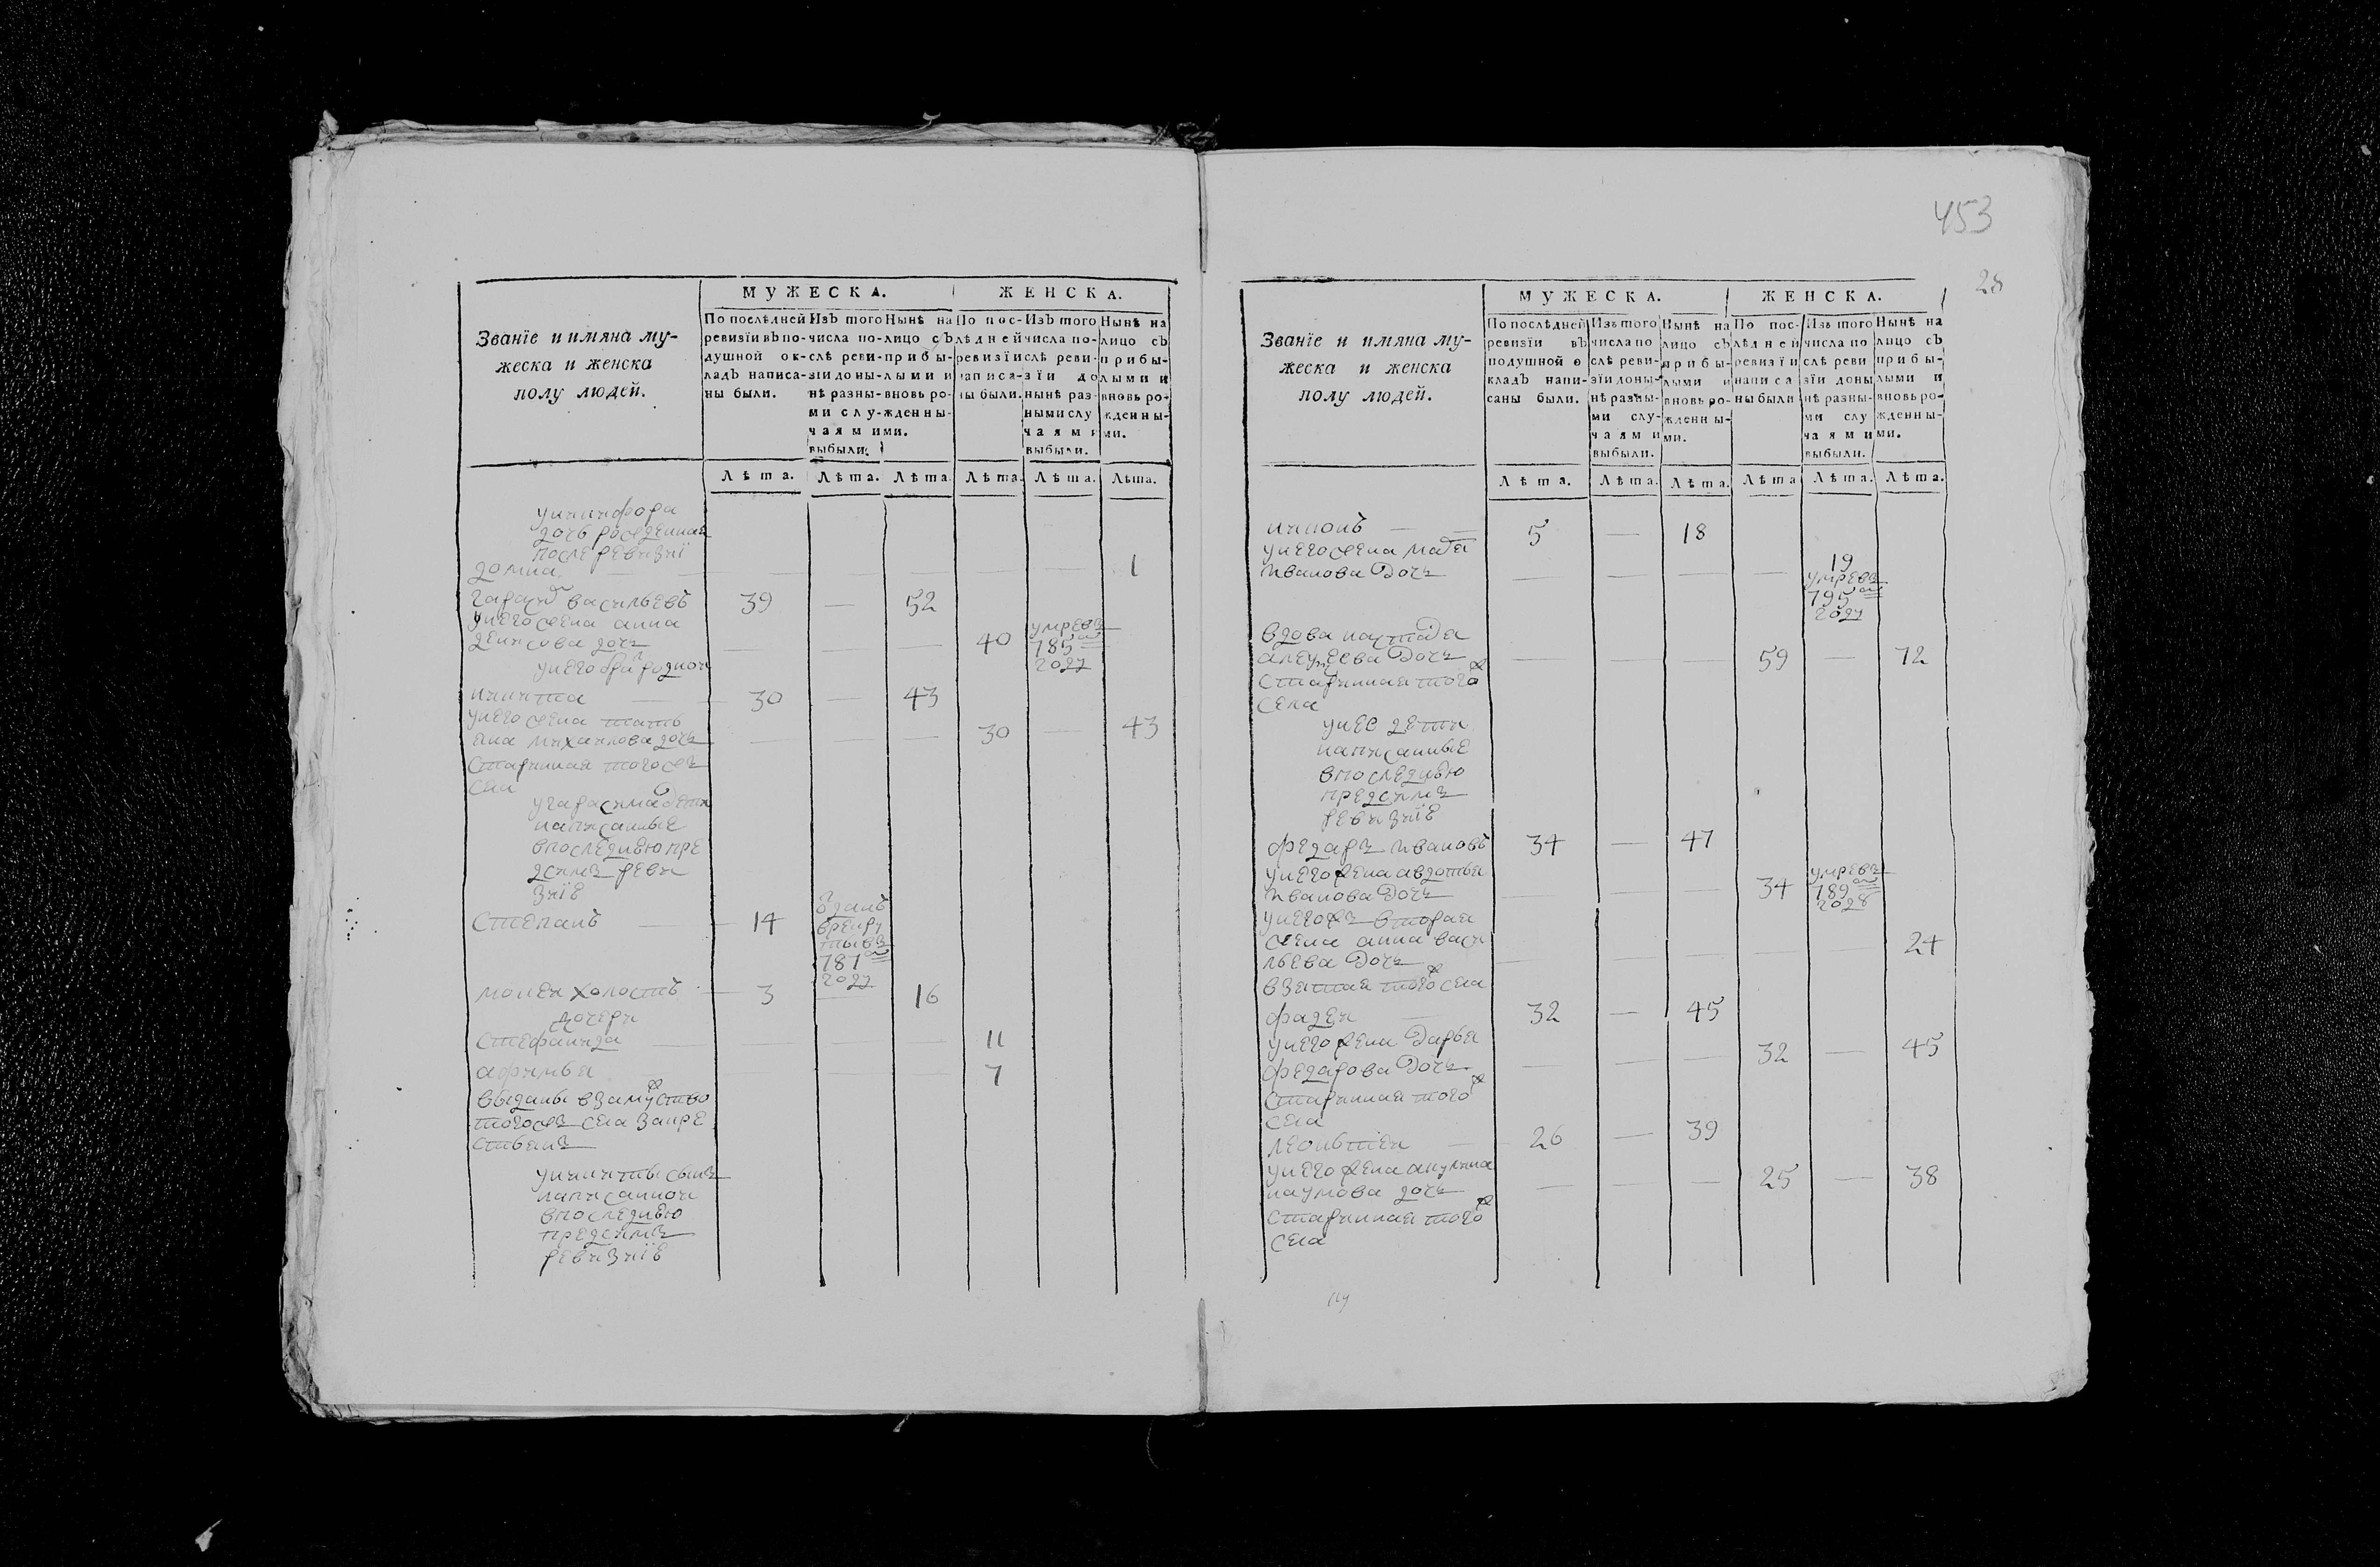 МУЖЕСКА. ЖЕНСКА.
Званïе и имяна му-
жеска и женска
полу людей.
По послѣдней
ревизïи въ по-
душной ок-
ладъ написа-
ны были.
Изъ того
числа по-
слѣ реви-
зïи до ны-
нѣ разны-
ми слу-
чаями
выбыли.
Нынѣ на
лицо съ
прибы-
лыми и
вновь ро-
жденны-
ми.
По пос-
лѣдней
ревизïи
написа-
ны были.
Изъ того
числа по-
слѣ реви-
зïи до
нынѣ раз-
ными слу
чаями
выбыли.
Нынѣ на
лицо съ
прибы-
лыми и
вновь ро-
жденны-
ми.
Лѣта. Лѣта. Лѣта. Лѣта. Лѣта. Лѣта.
уникифора
дочь рожденная
после ревизиï
домна 1
гарасим васильевъ 39 — 52
унего жена анна
денисова дочь 40 умре въ
785м
году
унего брат родной
никита 30 — 43
унего жена тать
яна михаилова дочь 30 — 43
старинная того ж
села
угарасима дети
написанные
впоследнюю пре
дсимъ реви
зиïе
степанъ 14 вданъ
врекру
ты въ
787м
году
моисей холостъ 3 — 16
дочери
стефанида 11
афимья 7
выданы взамуство
того жъ села за кре
стьянъ
уникиты сынъ
написанной
впоследнюю
предсимъ
ревизиïе
453
28
МУЖЕСКА. ЖЕНСКА.
Званïе и имяна му-
жеска и женска
полу людей.
По послѣдней
ревизïи въ
подушной о
кладъ напи-
саны были.
Изъ того
числа по
слѣ реви-
зïи доны-
нѣ разны-
ми слу-
чаями
выбыли.
Нынѣ на
лицо съ
прибы-
лыми и
вновь ро-
жденны-
ми.
По пос-
лѣдней
ревизïи
написа
ны были
Изъ того
числа по
слѣ реви
зïи доны
нѣ разны-
ми слу
чаями
выбыли.
Нынѣ на
лицо съ
прибы-
лыми и
вновь ро-
жденны-
ми.
Лѣта. Лѣта. Лѣта. Лѣта Лѣта. Лѣта.
5 — 18
унего жена
иванова дочь 19
умре въ
795м
году
вдова настася
дочь 59 — 72
старинная того ж
села
унее дети
написанные
впоследнюю
предсимъ
ревизиïе
федаръ ивановъ 34 — 47
унего жена авдотья
иванова дочь 34 умре въ
789м
году
унего ж вторая
жена анна васи
льева дочь 24
взятая того ж села
фадеи 32 — 45
унего жена дарья
федарова дочь 32 — 45
старинная того ж
села
леонътеи 26 — 39
унего жена акулина
наумова дочь 25 — 38
старинная того ж
села